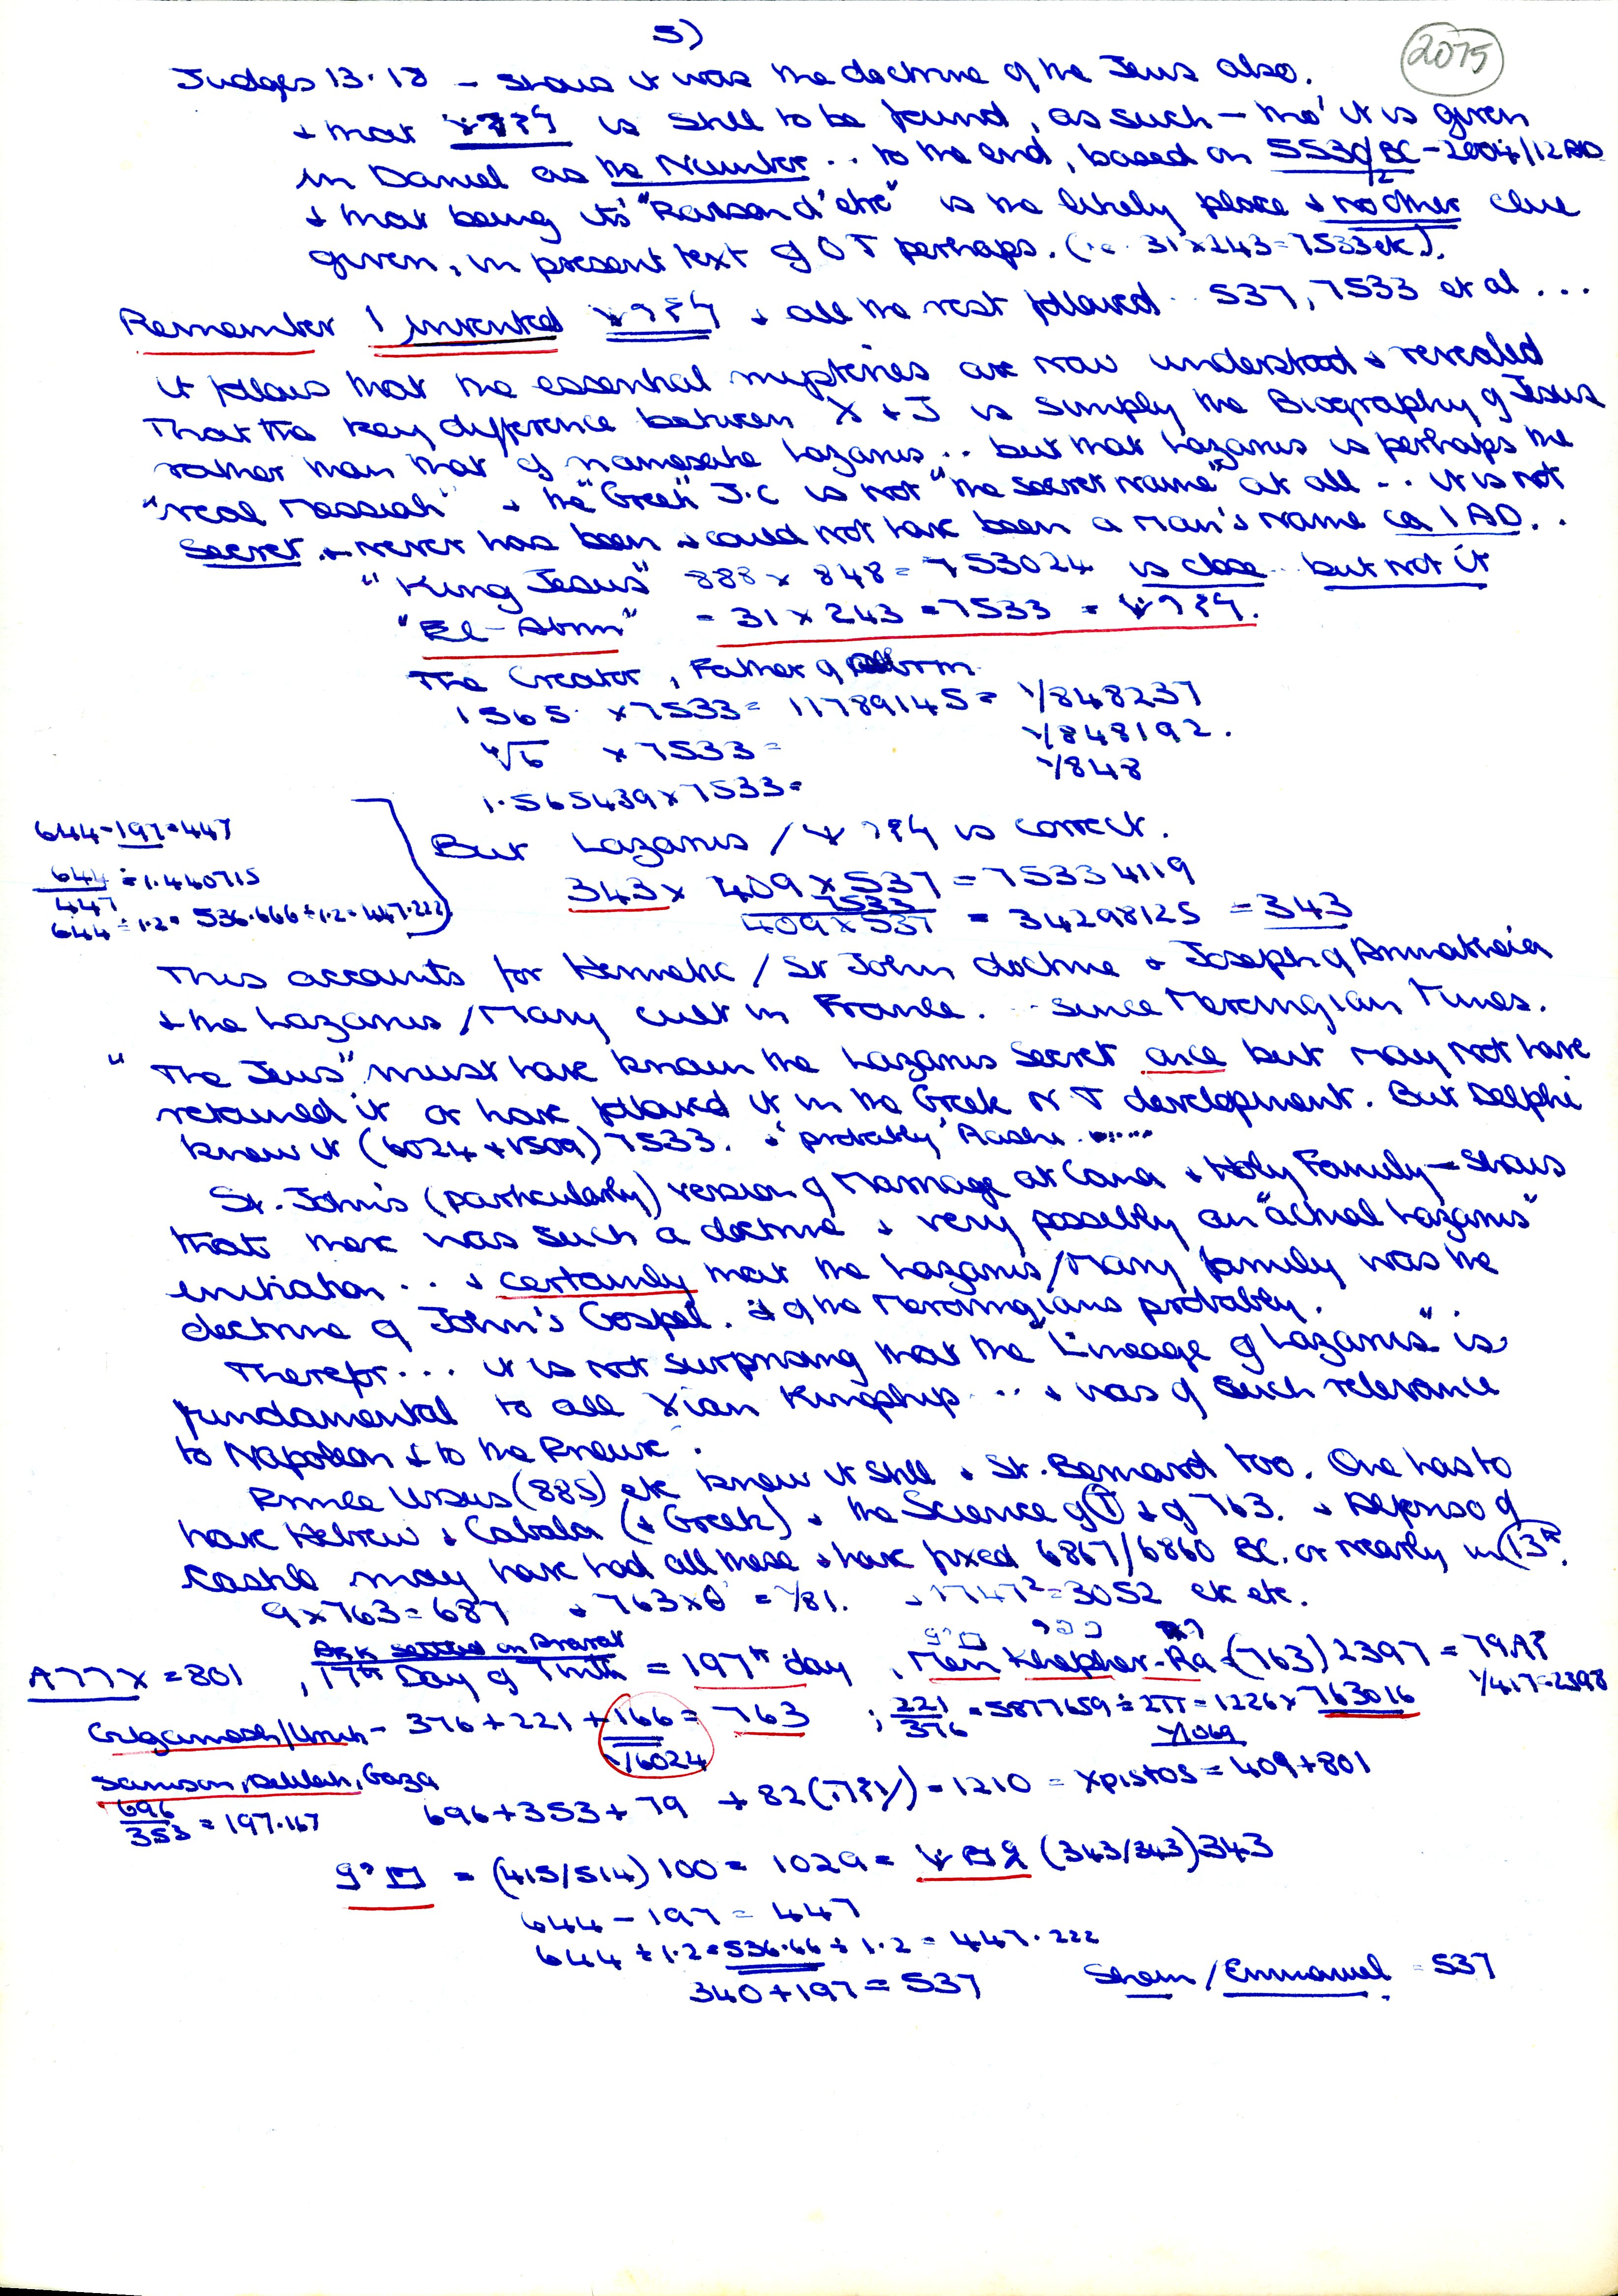 5)
2075
Judges 13.18 – shows it was the doctrine of the Jews also.
+ that is still to be found, as such – tho' it is given
in Daniel as the Number .. to the end, based on 5530/BC – 2004/12 AD
12
+ that being its "Raison d'etre" is the likely place + no other clue
given, in present text of OT perhaps. (i.e. 31 x 243 = 7533 etc).
Remember I invented + all the rest followed .. 537, 7533 et al ...
it follows that the essential mysteries are now understood + revealed
That the key difference between X + J is simply the Biography of Jesus
rather than that of namesake Lazarus .. but that Lazarus is perhaps the
"real Messiah" + the "Greek" J.C is not "the secret name" at all .. it is not
Secret + never has been + could not have been a man's name ca 1 AD. .
"King Jesus" 888 x 848 = 753024 is close .. but not it
"El – Abrm" = 31 x 243 = 7533 =
The Creator, Father of Abrm
1565 x 7533 = 11789145 = 1/848237
4√6 x 7533 = 1/848192.
1/848
1.565439 x 7533 =
644 – 197 = 447
But Lazarus / is correct.
644 ÷ 1.440715
447
343 x 409 x 537 = 75334119
644 ÷ 1.2 = 536.666 ÷ 1.2 = 447.222
7533
409 x 537 = 34298125 = 343
This accounts for Hermetic / St John doctrine + Joseph of Arimatheia
+ the Lazarus / Mary cult in France. .. since Merovingian Times.
"The Jews" must have known the Lazarus Secret once but may not have
retained it or have followed it in the Greek NT development. But Delphi
knew it (6024 + 1509) 7533. + 'probably' Rashi .....
St. John's (particularly) version of Marriage at Cana + Holy Family – shows
that there was such a doctrine + very possibly an "actual Lazarus"
initiation ... + certainly that the Lazarus / Mary family was the
doctrine of John's Gospel. + of the Merovingians probably.
Therefor ... it is not surprising that the "Lineage of Lazarus" is
fundamental to all Xian Kingship ... + was of such relevance
to Napoleon + to the Prieure.
Prince Ursus (885) etc knew it still + St. Bernard too. One has to
have Hebrew + Cabala (+ Greek) + the Science of T + of 763. + Alfonso of
Castile may have had all these + have fixed 6867/6860 BC. or nearly in 13th.
9 x 763 = 687 + 763 x θ = 1/81. + 1747² = 3052 etc etc.
Ark settled on Ararat
= 801 , 17th Day of Tmth = 197th day , Men Khepher-Ra – (763) 2397 = 79
1/417 = 2398
Gilgamesh/Uruk – 376 + 221 + 166 = 763 ; 221 = 5877659 ÷ 2π = 1226 x 763016
376
1/6024
1/1069
Samson, Delilah, Gaza
696 = 197.167
353
696 + 353 + 79 + 82 ( ) = 1210 = Xpistos = 409 + 801
= (415/514) 100 = 1029 = (343/343) 343
644 – 197 = 447
644 ÷ 1.2 = 536.66 ÷ 1.2 = 447.222
340 + 197 = 537 Shem / Emmanuel = 537